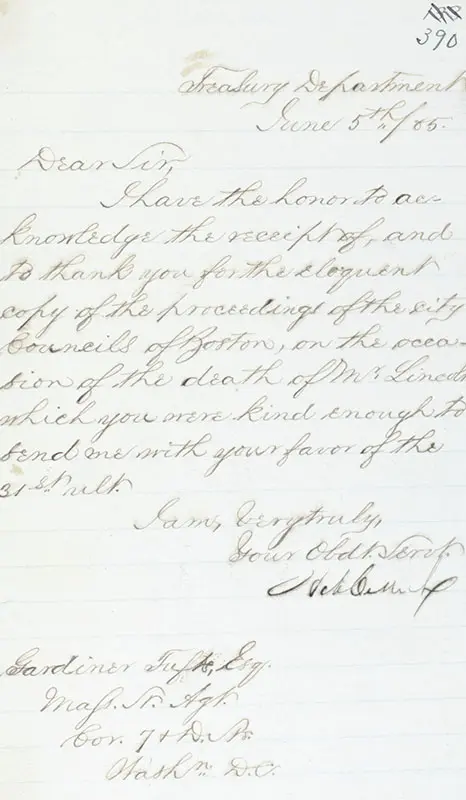 390
Treasury Department
June 5th/65.
Dear Sir,
I have the honor to ac-
knowledge the receipt of, and
to thank you for the eloquent
copy of the proceedings of the city
Councils of Boston, on the occa-
sion of the death of Mr Lincoln
which you were kind enough to
send me with your favor of the
31st ult.
I am, Very truly,
Your Obdt. Servt.
Gardiner Tufts, Esq.
Mass. St. Agt.
Cor. 7 & D. St.
Washn D.C.